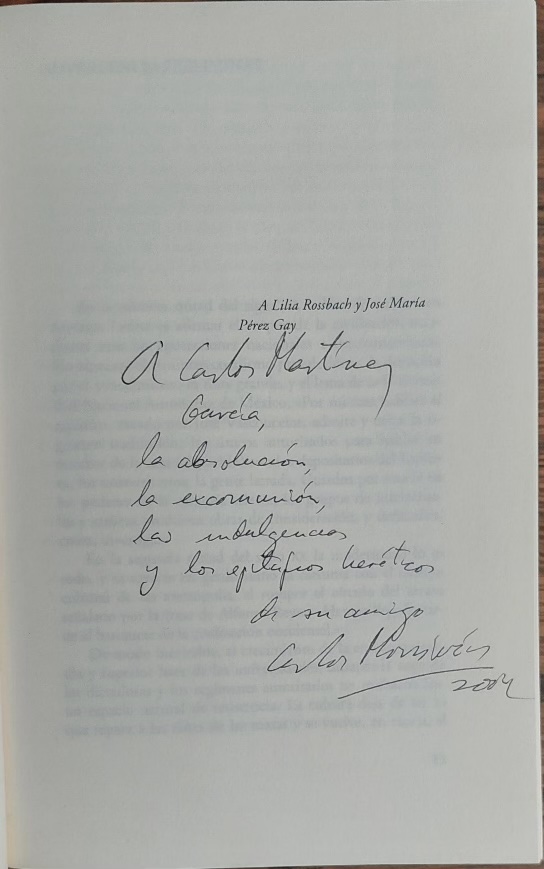 A Lilia Rossbach y José María
Pérez Gay
A Carlos Martínez
García,
la absolución,
la excomunión,
las indulgencias
y los epitafios heréticos
de su amigo
Carlos Monsiváis
2004